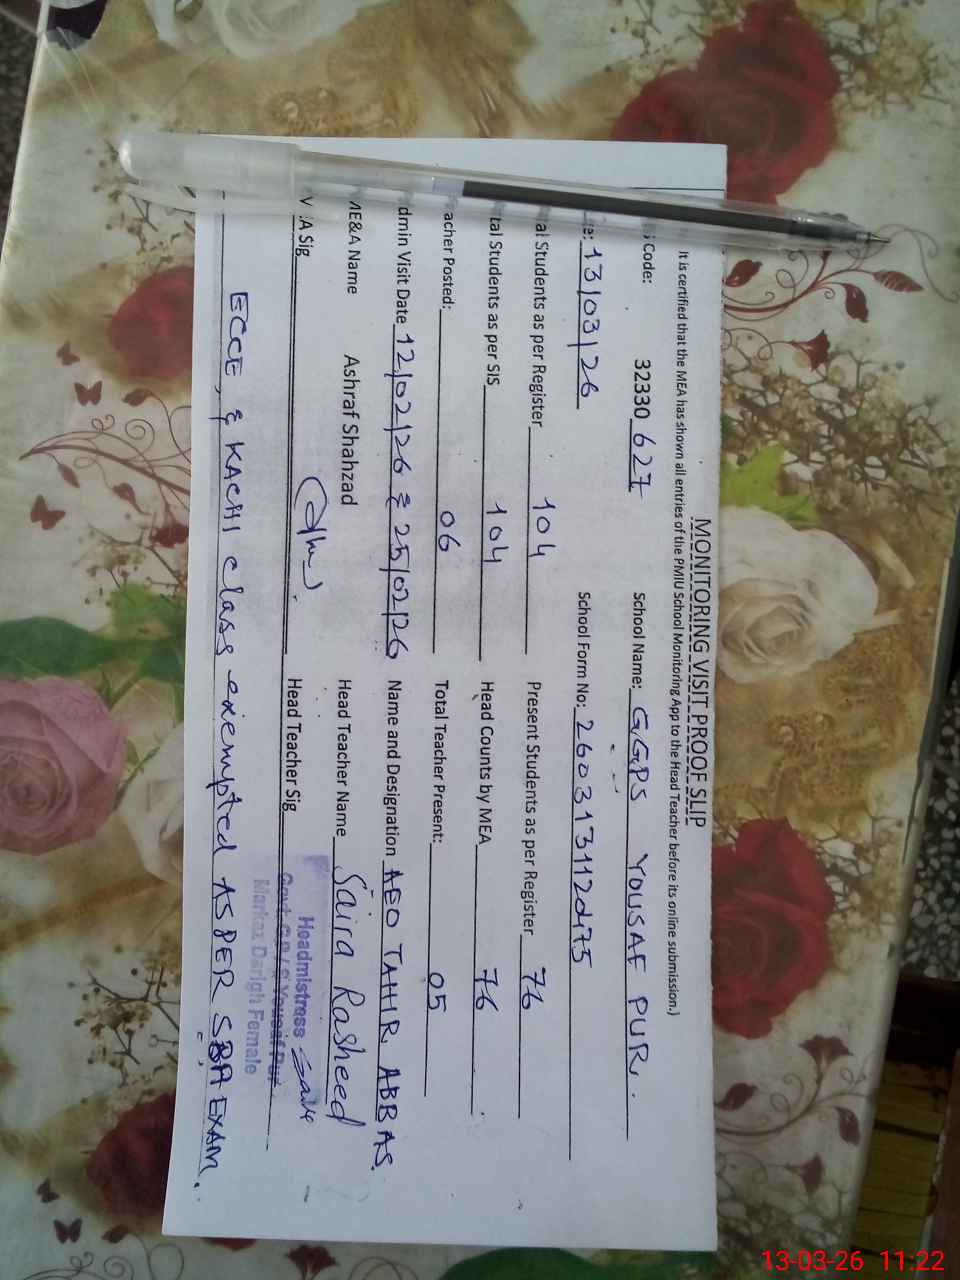 MONITORING VISIT PROOF SLIP
It is certified that the MEA has shown all entries of the PMIU School Monitoring App to the Head Teacher before its online submission.)
Code: 32330 627 School Name: GGPS YOUSAF PUR.
13/03/26 School Form No: 26031311 2d73
al Students as per Register 104 Present Students as per Register 76
tal Students as per SIS 104 Head Counts by MEA 76
acher Posted: 06 Total Teacher Present: 05
dmin Visit Date 12/02/26 & 25/02/26 Name and Designation AEO TAHIR ABBAS.
ME&A Name Ashraf Shahzad Head Teacher Name Saira Rasheed
A Sig Head Teacher Sig
Headmistress
Govt. G.P/S Yousaf Pur
Markaz Darigh Female
ECCE, & KACHI class exempted AS PER SBA EXAM.
13-03-26 11:22